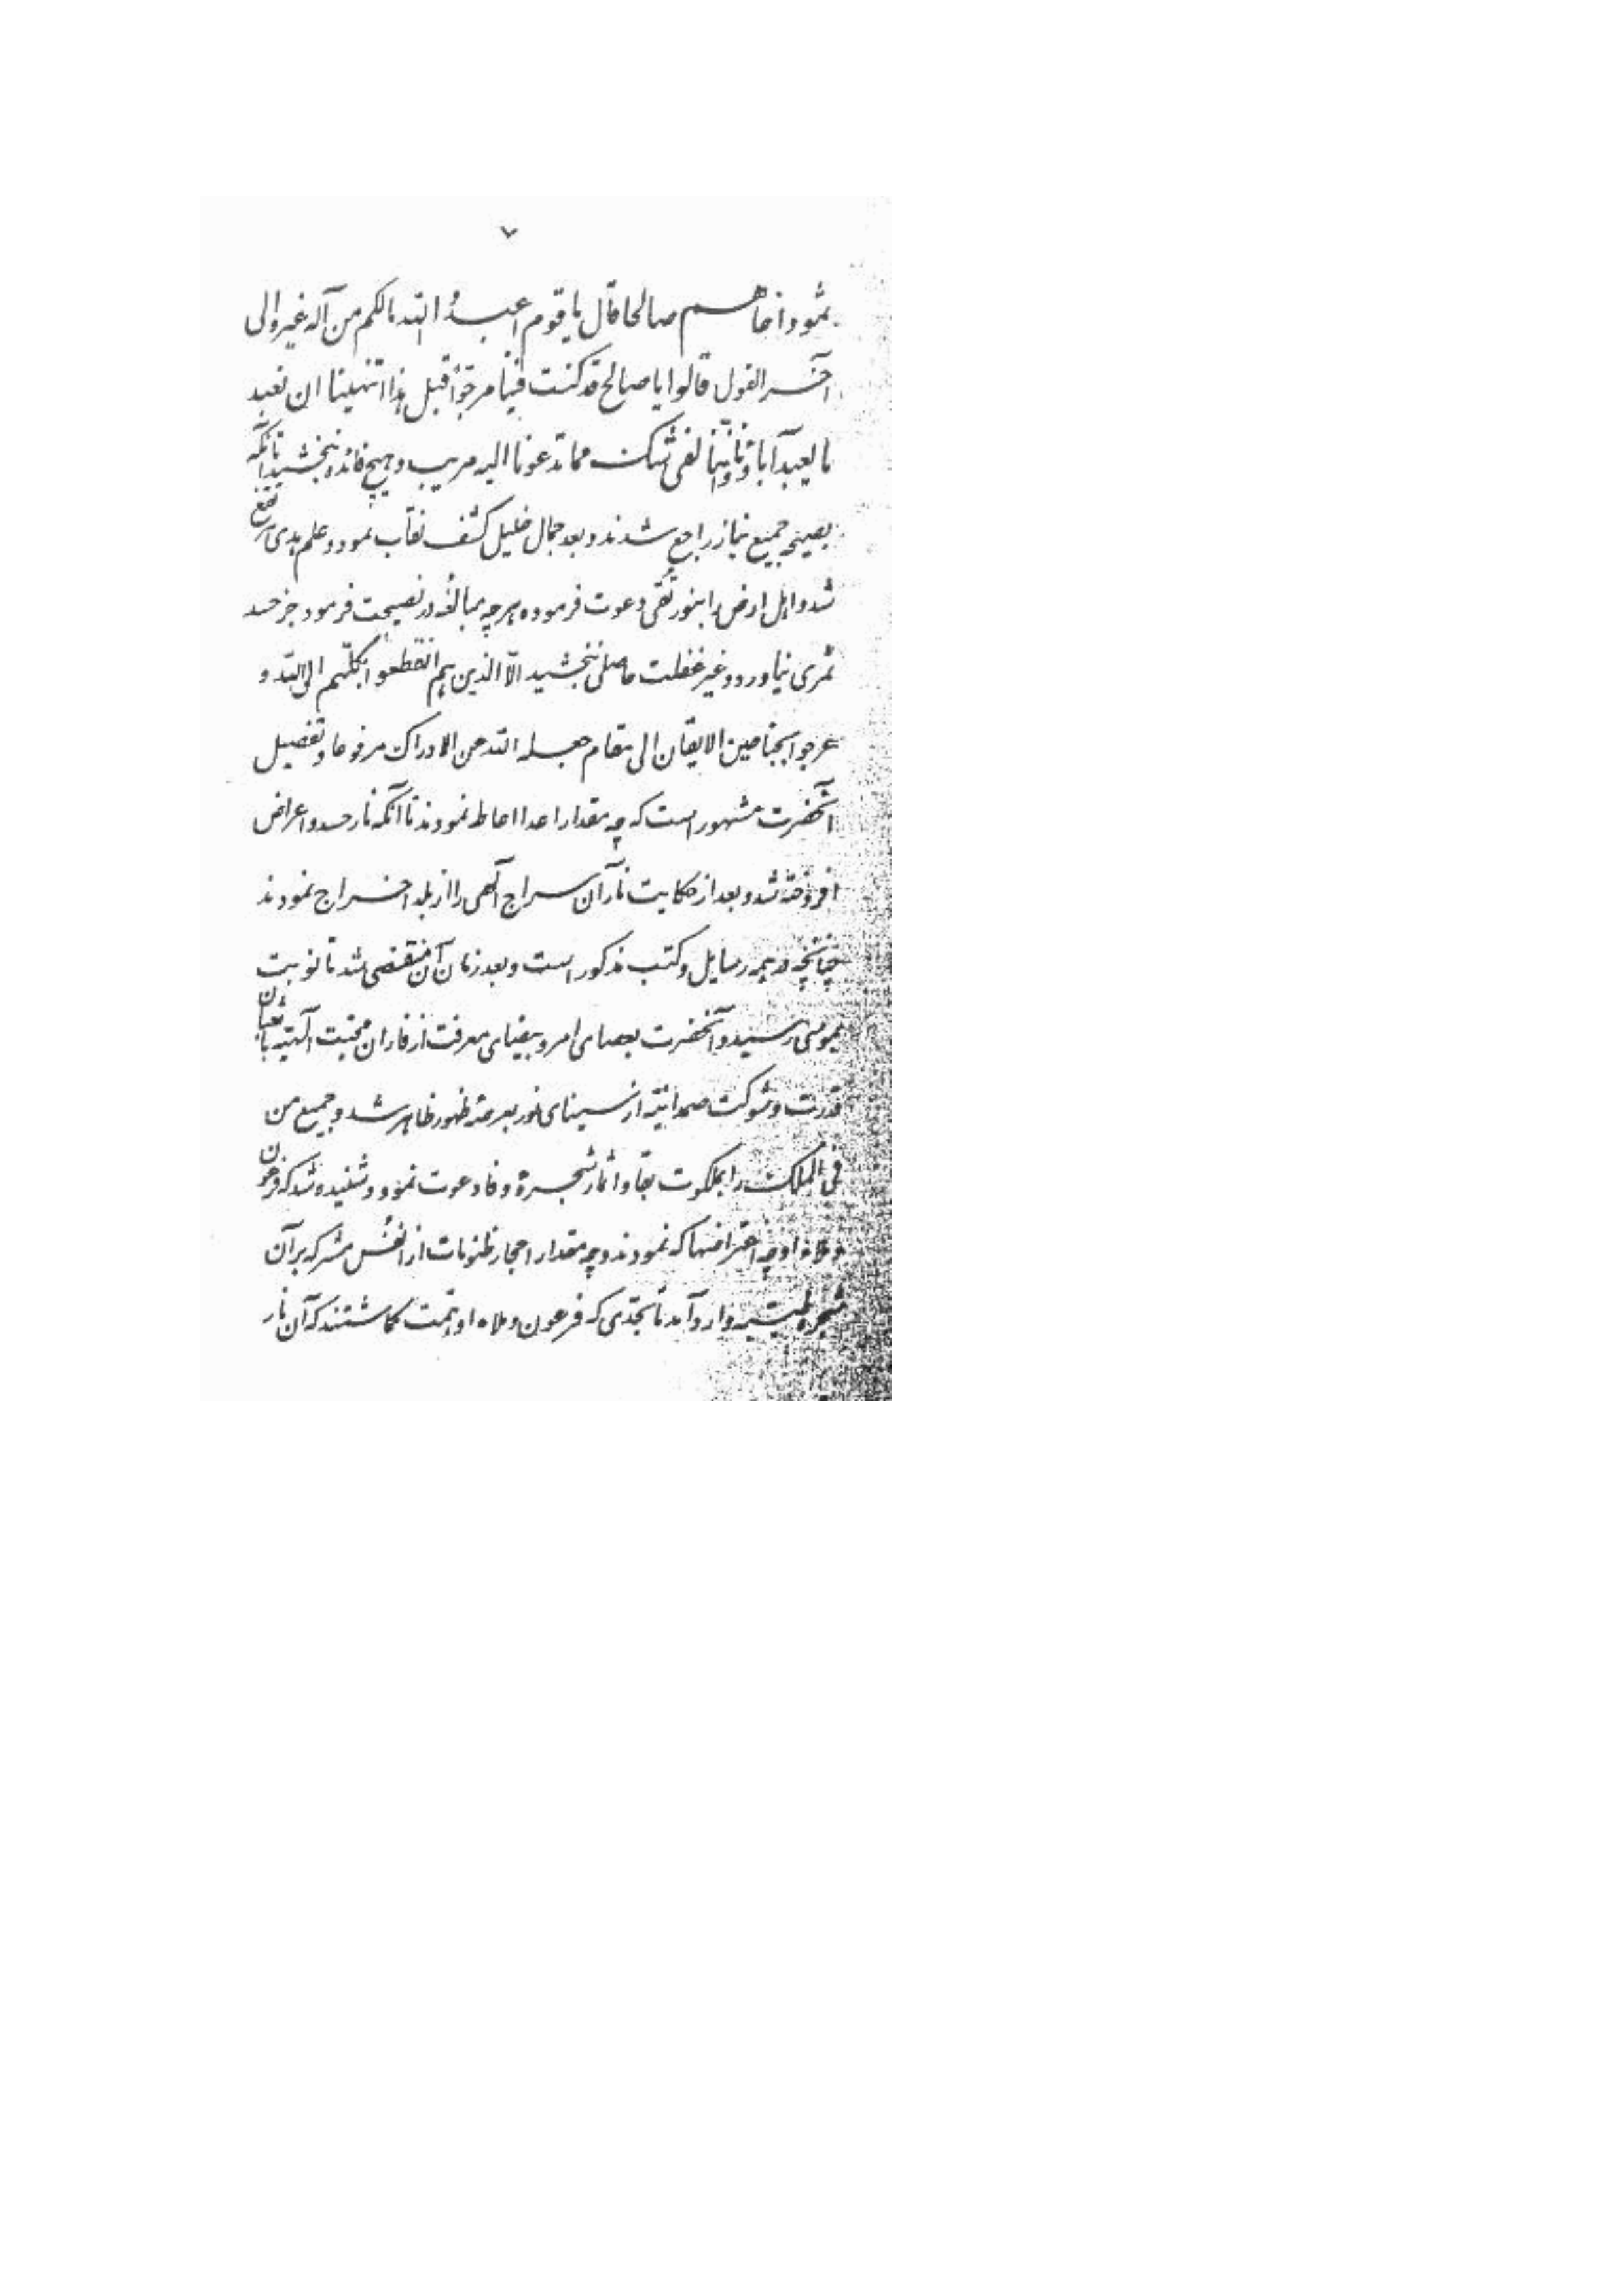 ۷
ثمود اخاهم صالحا قال یا قوم اعبدُ الله مالکم من آله غیره الی
آخر القول قالوا یا صالح قد کنت فینا مرجوّاً قبل هذا اتنهینا ان نعبد
ما یعبد آباؤنا و انّنا لفی شک مما تدعونا الیه مریب و هیچ فائده نبخشید تا آنکه
بصیحهٔ جمیع بنار راجع شدند و بعد جمال خلیل کشف نقاب نمود و علم هدی مرتفع
شد و اهل ارض را بنور تُقی دعوت فرمود ه هر چه مبالغه در نصیحت فرمود جز حسد
ثمری نیاورد و غیر غفلت حاصلی نبخشید الّا الذین هم انقطعوا بکلّهم الی الله و
عرجوا بجناحین الایقان الی مقام جعله الله عن الادراک مرفوعا و تفصیل
آنحضرت مشهور است که چه مقدار اعدا احاطه نمودند تا آنکه نار حسد و اعراض
افروخته شد و بعد از حکایت نار آن سراج الهی را از بلد اخراج نمودند
چنانچه در همه رسایل و کتب مذکور است و بعد زمان آن منقضی شد تا نوبت
بموسی رسید و آنحضرت بعصای امر و بیضای معرفت از فاران محبّت الهیّه با ثعبان
قدرت و شوکت صمدانیّه از سینای نور بعرصهٔ ظهور ظاهر شد و جمیع من
فی الملک را بملکوت بقا و اثمار شجرهٔ وفا دعوت نمود و شنیده شد که فرعون
و ملاء او چه اعتراضها که نمودند و چه مقدار احجار ظنونات از انفُس مشرکه بر آن
شجره طیّبه وارد آمد تا بحدّی که فرعون و ملاء او همّت گماشتند که آن نار